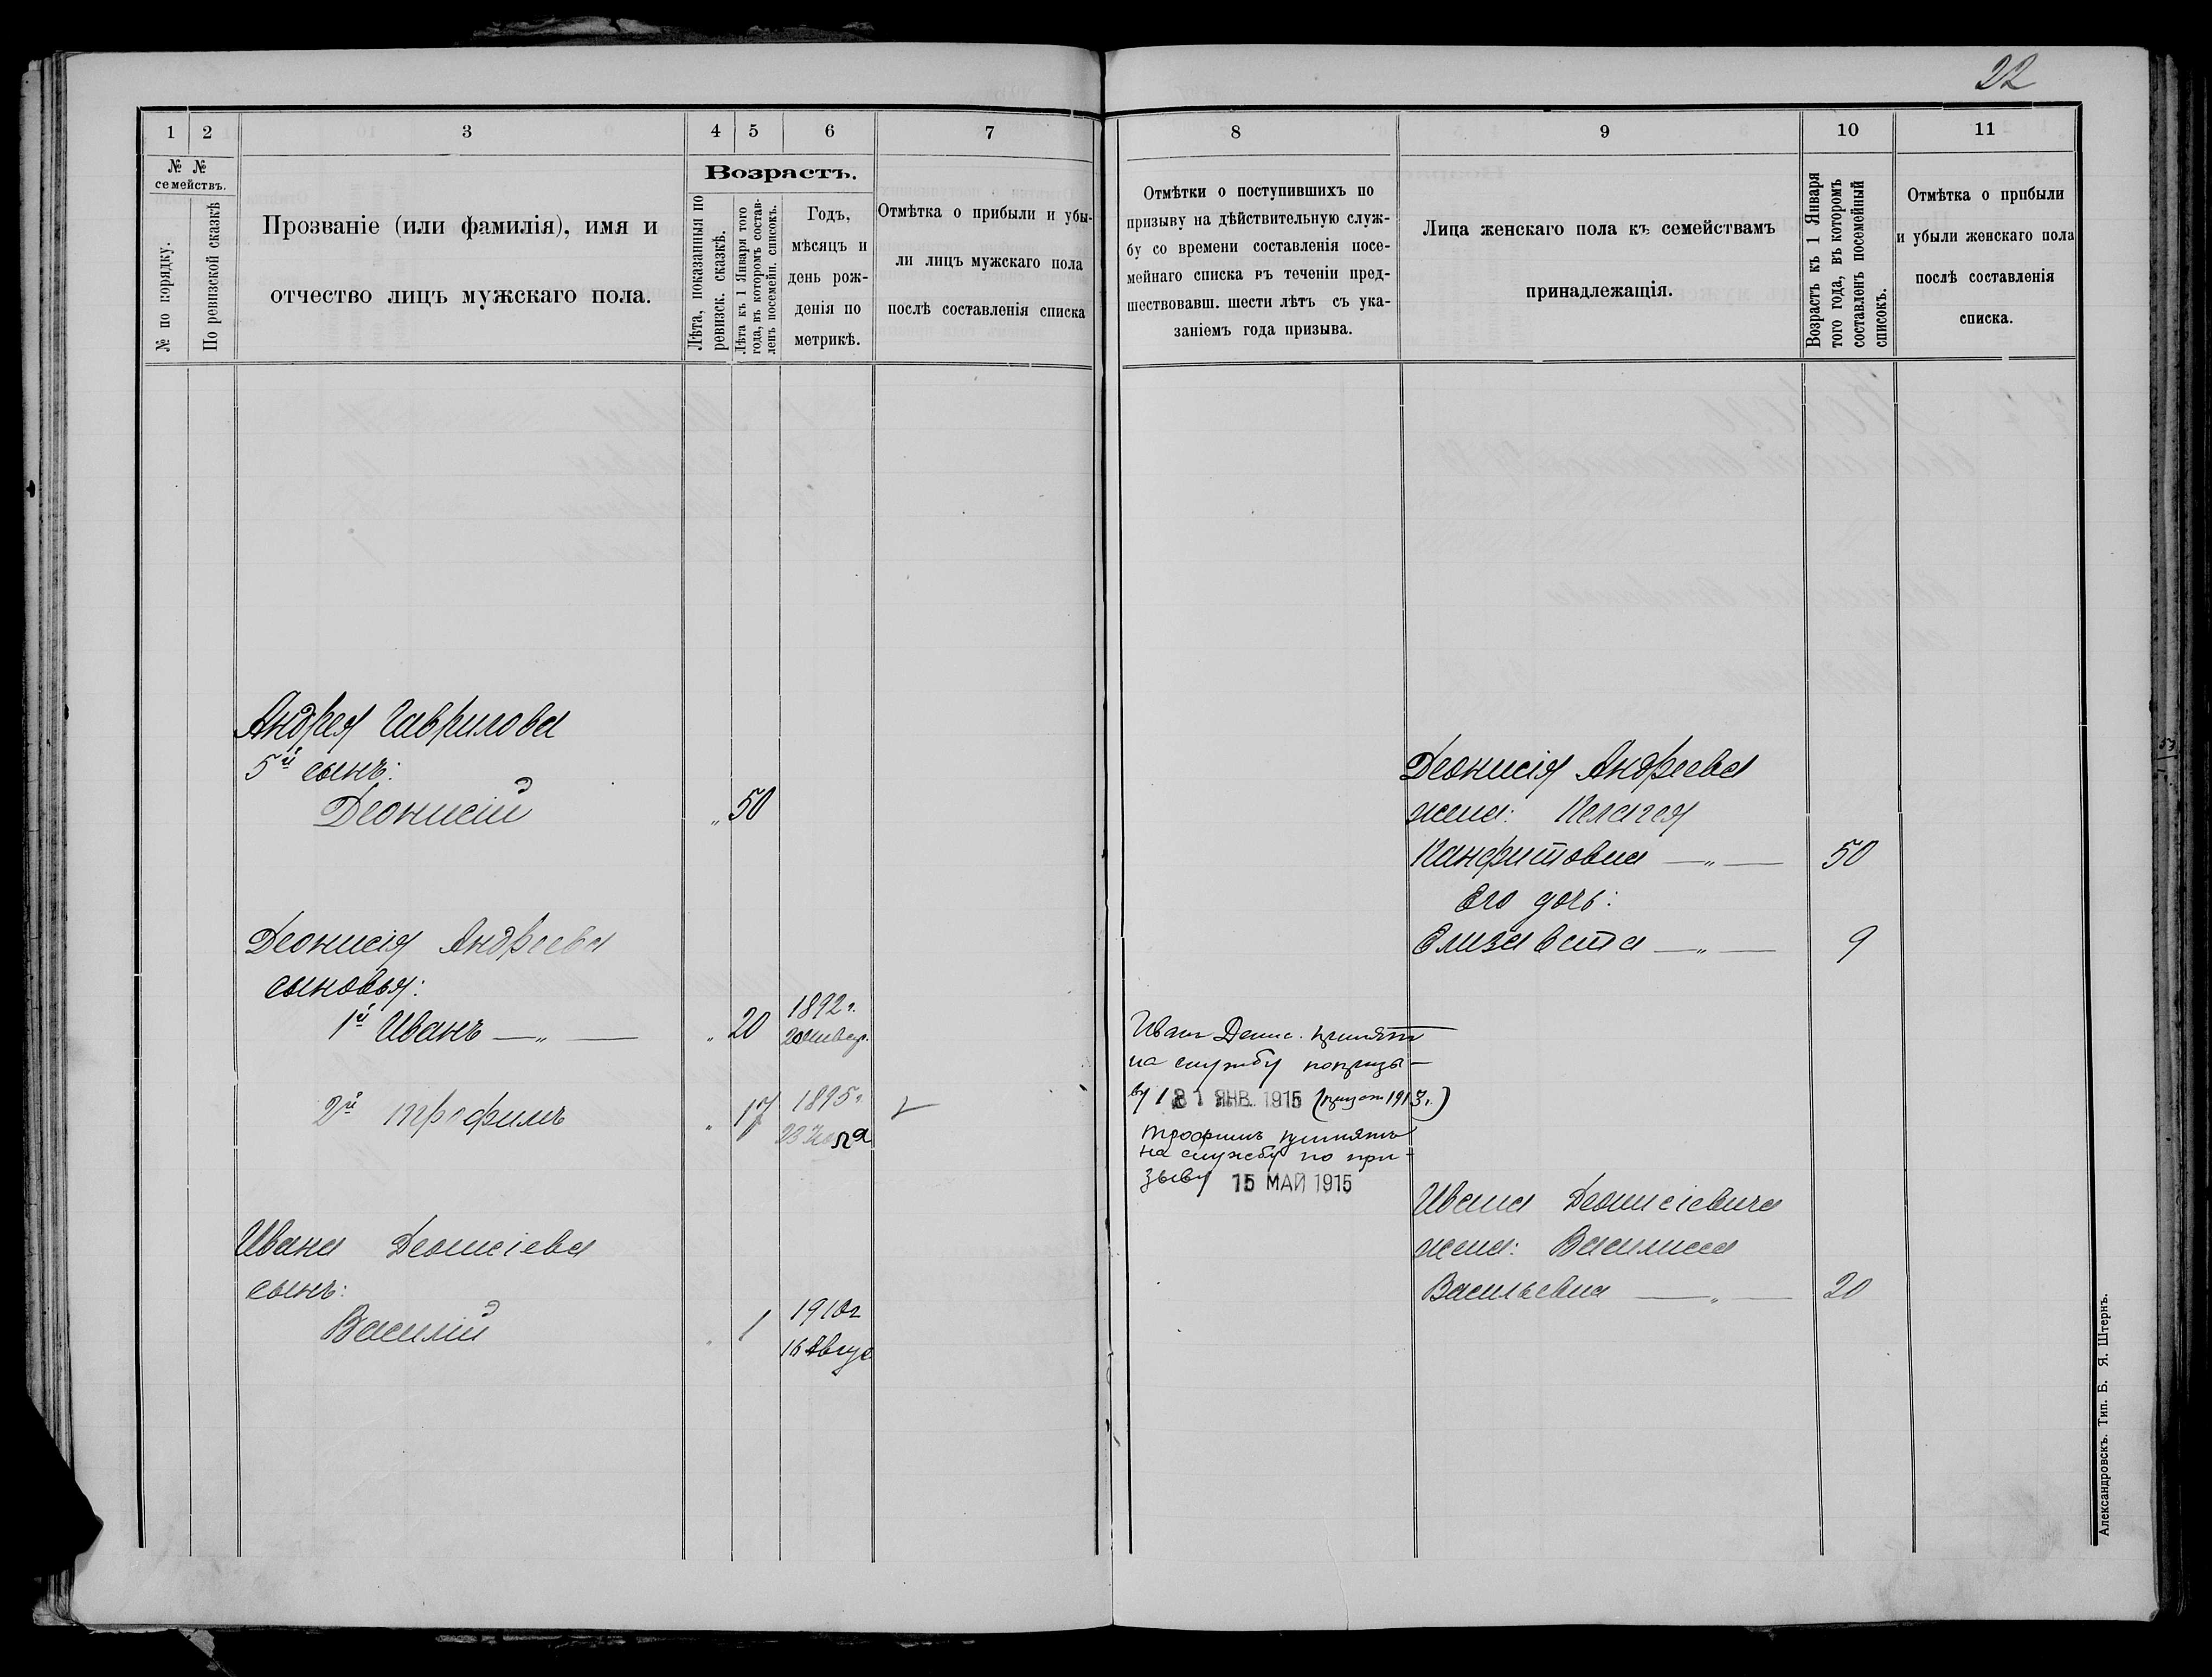 22
1
2
3
4
5
6
7
№ №
семействъ.
№ по порядку.
По ревизской сказкѣ
Прозваніе (или фамилія), имя и
отчество лицъ мужскаго пола.
Возрастъ.
Лѣта, показанныя по
ревизск. сказкѣ.
Лѣта къ 1 Января того
года, въ которомъ состав-
ленъ посемейн. списокъ.
Годъ,
мѣсяцъ и
день рож-
денія по
метрикѣ.
Отмѣтка о прибыли и убы-
ли лицъ мужскаго пола
послѣ составленія списка
Андрея Гаврилова
5й сынъ:
Деонисій " 50
Деонисія Андреева
сыновья:
1й Иванъ — " — " 20 1892 г.
20 январ.
2й Трофимъ " 17 1895 г.
23 Іюля
Ивана Деонисіева
сынъ:
Василій " 1 1910 г
16 Авгус
8
9
10
11
Отмѣтки о поступившихъ по
призыву на дѣйствительную служ-
бу со времени составленія посе-
мейнаго списка въ теченіи пред-
шествовавш. шести лѣтъ съ ука-
заніемъ года призыва.
Лица женскаго пола къ семействамъ
принадлежащія.
Возрастъ къ 1 Января
того года, въ которомъ
составленъ посемейный
списокъ.
Отмѣтка о прибыли
и убыли женскаго пола
послѣ составленія
списка.
Деонисія Андреева
жена: Пелагея
Панфитовна — " — 50
Его дочь:
Елизавета — " — 9
Иван Денис. принят
на службу по призы-
ву ЯНВ. 1915
Трофимъ принятъ
на службу по при-
зыву 15 МАЙ 1915
Ивана Деонисіевича
жена: Василиса
Васильевна — " — 20
Александровскъ. Тип. Б. Я. Штернъ.